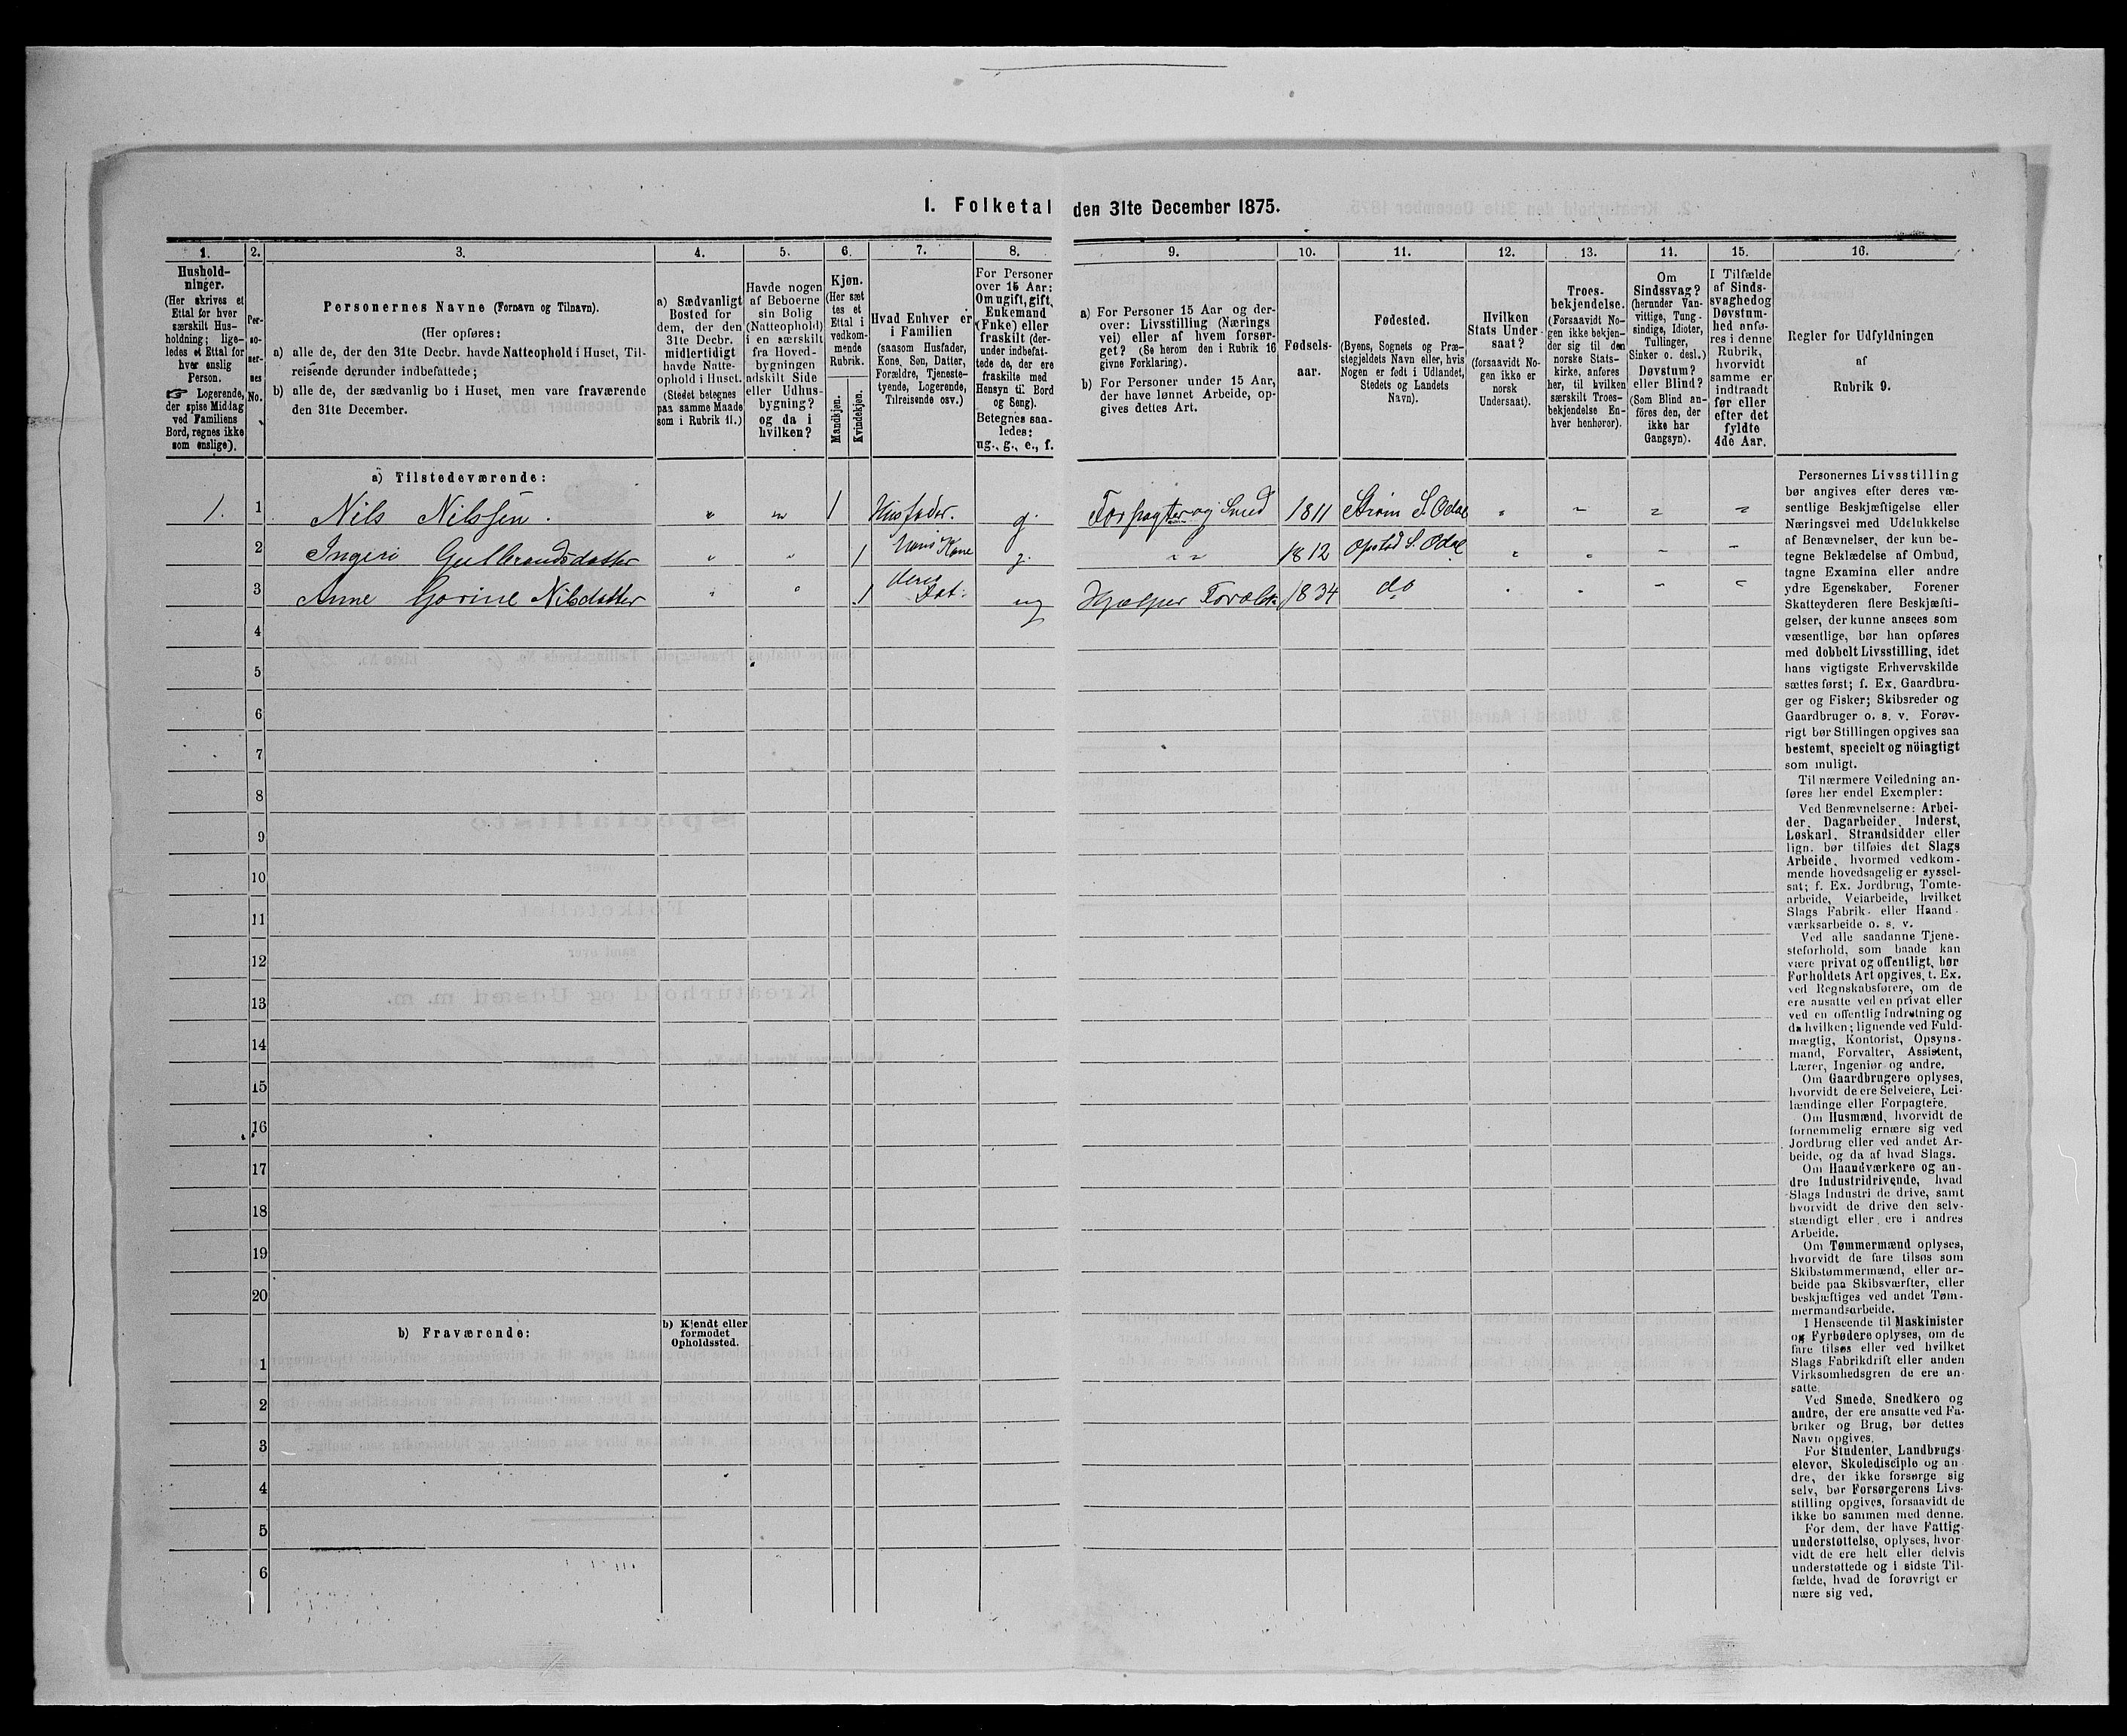 1. Folketal den 31te December 1875.
1. 2. 3. 4. 5. 6. 7. 8. 9. 10. 11. 12. 13. 14. 15. 16.
Hushold-
ninger.
(Her skrives et
Ettal for hver
særskilt Hus-
holdning; lige-
ledes et Ettal for
hver enslig
Person.
☞ Logerende,
der spise Middag
ved Familiens
Bord, regnes ikke
som enslige).
Per-
so-
ner-
nes
No.
Personernes Navne (Fornavn og Tilnavn).
(Her opføres:
a) alle de, der den 31te Decbr. havde Natteophold i Huset, Til-
reisende derunder indbefattede;
b) alle de, der sædvanlig bo i Huset, men vare fraværende
den 31te December.
a) Sædvanligt
Bosted for
dem, der den
31te Decbr.
midlertidigt
havde Natte-
ophold i Huset.
(Stedet betegnes
paa samme Maade
som i Rubrik 11.)
Havde nogen
af Beboerne
sin Bolig
(Natteophold)
i en særskilt
fra Hoved-
bygningen
adskilt Side
eller Udhus-
bygning?
og da i
hvilken?
Kjøn.
(Her sæt
tes et
Ettal i
vedkom-
mende
Rubrik.
Mandkjøn.
Kvindekjøn.
Hvad Enhver er
i Familien
(saasom Husfader,
Kone, Søn, Datter,
Forældre, Tjeneste-
tyende, Logerende,
Tilreisende osv.)
For Personer
over 15 Aar:
Om ugift, gift,
Enkemand
(Enke) eller
fraskilt (der-
under indbefat-
tede de, der ere
fraskilte med
Hensyn til Bord
og Seng).
Betegnes saa-
ledes:
ug., g., e., f.
a) For Personer 15 Aar og der-
over: Livsstilling (Nærings
vei) eller af hvem forsør-
get? (Se herom den i Rubrik 16
givne Forklaring).
b) For Personer under 15 Aar,
der have lønnet Arbeide, op-
gives dettes Art.
Fødsels-
aar.
Fødested.
(Byens, Sognets og Præ-
stegjeldets Navn eller, hvis
Nogen er født i Udlandet,
Stedets og Landets
Navn).
Hvilken
Stats Under-
saat?
(forsaavidt No-
gen ikke er
norsk
Undersaat).
Troes-
bekjendelse.
(Forsaavidt No-
gen ikke bekjen-
der sig til den
norske Stats-
kirke, anføres
her, til hvilken
særskilt Troes-
bekjendelse En-
hver henhører).
Om
Sindssvag?
(herunder Van-
vittige, Tung-
sindige, Idioter,
Tullinger,
Sinker o. desl.)
Døvstum?
eller Blind?
(Som Blind an-
føres den, der
ikke har
Gangsyn).
I Tilfælde
af Sinds-
svaghed og
Døvstum-
hed anfø-
res i denne
Rubrik,
hvorvidt
samme er
indtraadt
før eller
efter det
fyldte
4de Aar.
Regler for Udfyldningen
af
Rubrik 9.
a) Tilstedeværende:
1. 1 Nils Nilssen. „ „ 1 Husfader. g. Forpagter og Smed 1811 Strøm S. Odal „ „ „ „
2 Ingeri Gulbrandsdatter „ „ 1 hans Kone g. „ „ 1812 Opstad S. Odal „ „ „ „
3 Anne Gorine Nilsdatter „ „ 1 deres Dat. ug Hjælper Forældr. 1834 do „ „ „ „
4
5
6
7
8
9
10
11
12
13
14
15
16
17
18
19
20
b) Fraværende:
b) Kjendt eller
formodet
Opholdssted.
1
2
3
4
5
6
Personernes Livsstilling
bør angives efter deres væ-
sentlige Beskjæftigelse eller
Næringsvei med Udelukkelse
af Benævnelser, der kun be-
tegne Beklædelse af Ombud,
tagne Examina eller andre
ydre Egenskaber. Forener
Skatteyderen flere Beskjæfti-
gelser, der kunne ansees som
væsentlige, bør han opføres
med dobbelt Livsstilling, idet
hans vigtigste Erhvervskilde
sættes først; f. Ex. Gaardbru-
ger og Fisker; Skibsreder og
Gaardbruger o. s. v. Forøv-
rigt bør Stillingen opgives saa
bestemt, specielt og nöiagtigt
som muligt.
Til nærmere Veiledning an-
føres her endel Exempler:
Ved Benævnelserne: Arbei-
der, Dagarbeider, Inderst,
Løskarl, Strandsidder eller
lign. bør tilføies det Slags
Arbeide, hvormed vedkom-
mende hovedsagelig er syssel-
sat; f. Ex. Jordbrug, Tomte-
arbeide, Veiarbeide, hvilket
Slags Fabrik- eller Haand-
værksarbeide o. s. v.
Ved alle saadanne Tjene-
steforhold, som baade kan
være privat og offentligt, bør
Forholdets Art opgives, t. Ex.
ved Regnskabsførere, om de
ere ansatte ved en privat eller
ved en offentlig Indretning og
da hvilken; lignende ved Fuld-
mægtig, Kontorist, Opsyns-
mand, Forvalter, Assistent,
Lærer, Ingeniør og andre.
Om Gaardbrugere oplyses,
hvorvidt de ere Selveiere, Lei-
lændinge eller Forpagtere.
Om Husmænd, hvorvidt de
fornemmelig ernære sig ved
Jordbrug eller ved andet Ar-
beide, og da af hvad Slags.
Om Haandværkere og an-
dre Industridrivende, hvad
Slags Industri de drive, samt
hvorvidt de drive den selv-
stændigt eller ere i andres
Arbeide.
Om Tømmermænd oplyses,
hvorvidt de fare tilsøs som
Skibstømmermænd, eller ar-
beide paa Skibsværfter, eller
beskjæftiges ved andet Tøm-
mermandsarbeide.
I Henseende til Maskinister
og Fyrbødere oplyses, om de
fare tilsøs eller ved hvilket
Slags Fabrikdrift eller anden
Virksomhedsgren de ere an-
satte.
Ved Smede, Snedkere og
andre, der ere ansatte ved Fa-
briker og Brug, bør dettes
Navn opgives.
For Studenter, Landbrugs-
elever, Skoledisciple og an-
dre, der ikke forsørge sig
selv, bør Forsørgerens Livs-
stilling opgives, forsaavidt de
ikke bo sammen med denne.
For dem, der have Fattig-
understøttelse, oplyses, hvor-
vidt de ere helt eller delvis
understøttede og i sidste Til-
fælde, hvad de forøvrigt er-
nære sig ved.